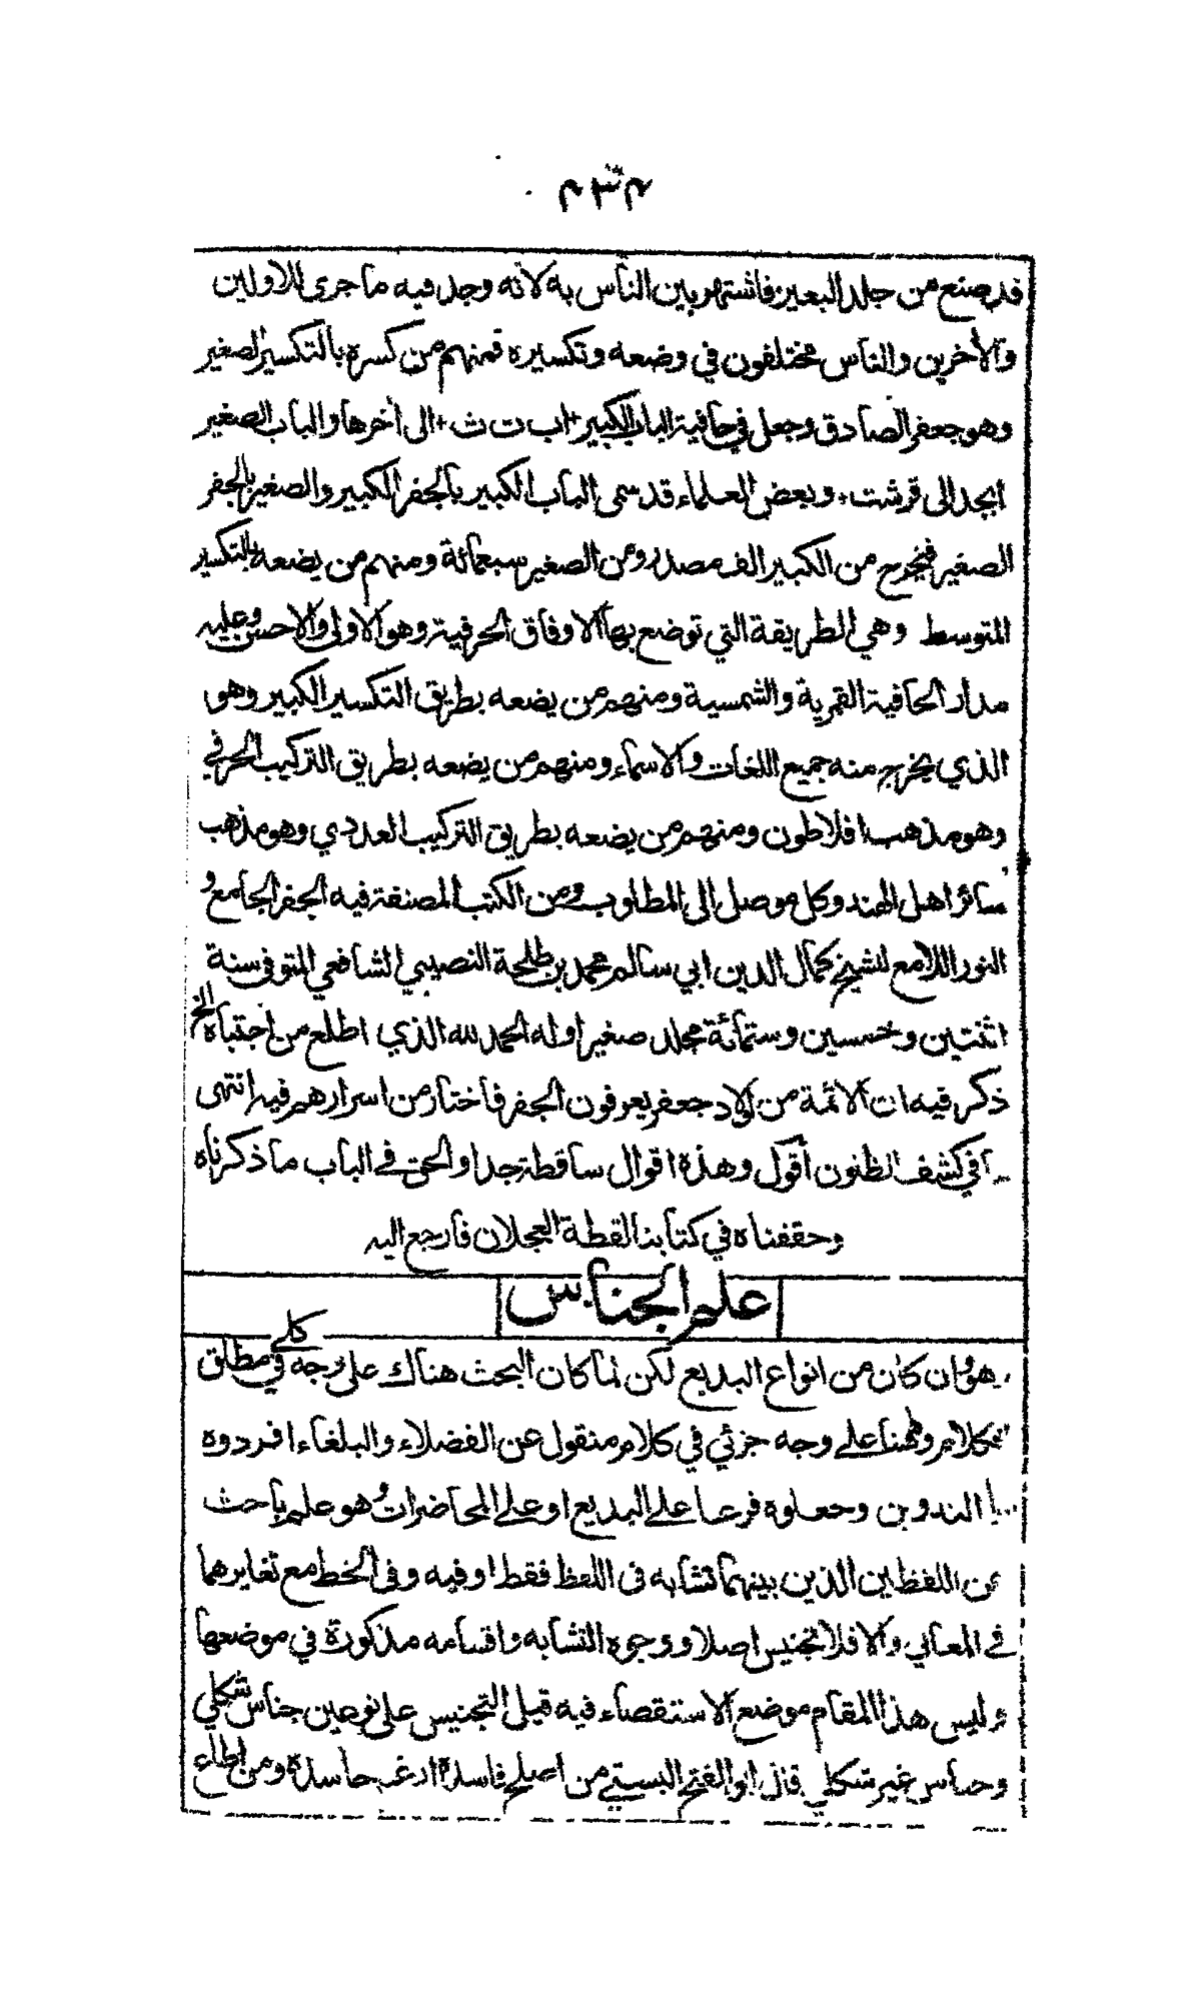 ٤٣٤
قد صنع من جلد البعير فاشتهر بين الناس به لانه وجد فيه ما جرى للاولين
والأخرين والناس مختلفون في وضعه وتكسيره فمنهم من كسره بالتكسير الصغير
وهو جعفر الصادق وجعل في خافية الباب الكبير ا ب ت ث الى أخرها والباب الصغير
ابجد الى قرشت وبعض العلماء قد سمى الباب الكبير بالجفر الكبير والصغير بالجفر
الصغير فيخرج من الكبير الف مصدر ومن الصغير سبعمائة ومنهم من يضعه بالتكسير
المتوسط وهي الطريقة التي توضع بها الاوفاق الحرفية وهو الاولى والاحسن وعليه
مدار الخافية القمرية والشمسية ومنهم من يضعه بطريق التكسير الكبير وهو
الذي يخرج منه جميع اللغات والاسماء ومنهم من يضعه بطريق التركيب الحرفي
وهو مذهب افلاطون ومنهم من يضعه بطريق التركيب العددي وهو مذهب
سائر اهل الهند وكل موصل الى المطلوب ومن الكتب المصنفة فيه الجفر الجامع و
النور اللامع للشيخ كمال الدين ابي سالم محمد بن طلحة النصيبي الشافعي المتوفى سنة
اثنتين وخمسين وستمائة مجلد صغير اوله الحمد لله الذي اطلع من اجتباه الخ
ذكر فيه ان الائمة من اولاد جعفر يعرفون الجفر فاختار من اسرارهم فيه انتهى
ما في كشف الظنون أقول وهذه اقوال ساقطة جدا والحق في الباب ما ذكرناه
وحققناه في كتابنا لقطة العجلان فارجع اليه
علم الجناس
هو وان كان من انواع البديع لكن لما كان البحث هناك على وجه كلي في مطلق
الكلام وههنا على وجه جزئي في كلام منقول عن الفضلاء والبلغاء افردوه
بالتدوين وجعلوه فرعا على البديع او على المحاضرات وهو علم باحث
عن اللفظين الذين بينهما تشابه في اللفظ فقط او فيه وفي الخط مع تغايرهما
في المعاني والا فلا تجنيس اصلا ووجوه التشابه واقسامه مذكورة في موضعها
وليس هذا المقام موضع الاستقصاء فيه قيل التجنيس على نوعين جناس شكلي
وجناس غير شكلي قال ابو الفتح البستي من اصلح فاسده ارغم حاسده ومن اطاع